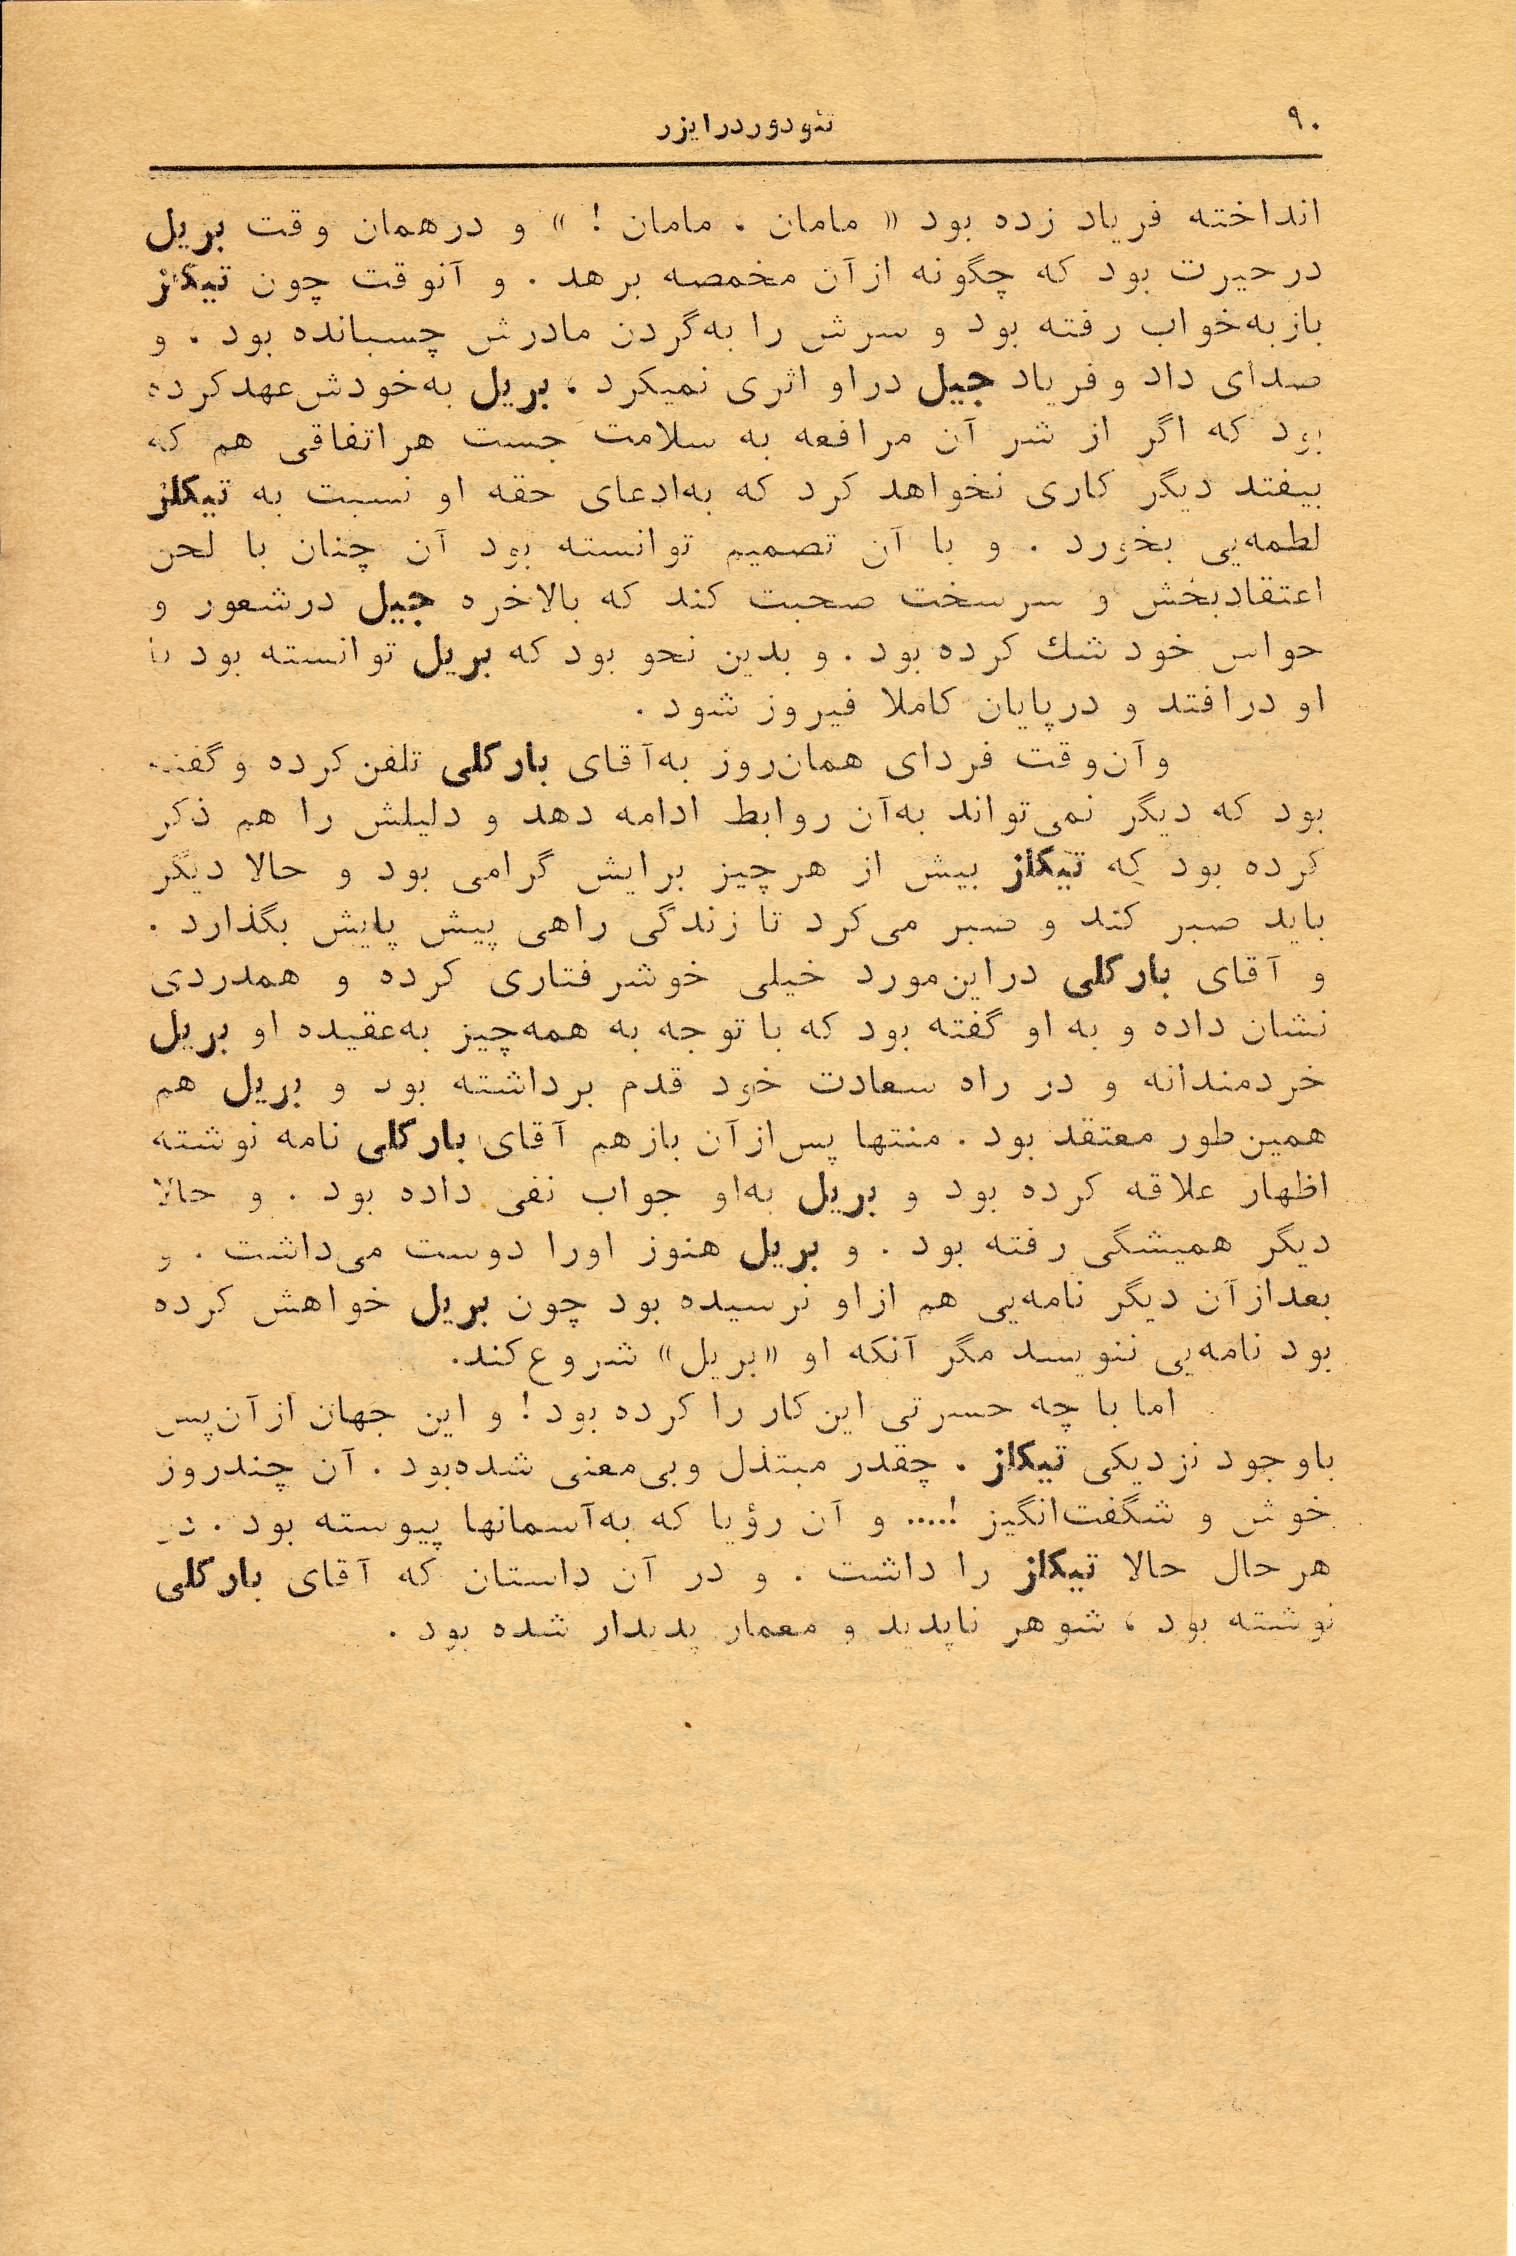 ۹۰
تئودوردرایزر
انداخته فریاد زده بود « مامان ، مامان ! » و درهمان وقت بریل
درحیرت بود که چگونه ازآن مخمصه برهد . و آنوقت چون تیکلز
بازبه‌خواب رفته بود و سرش را به‌گردن مادرش چسبانده بود ، و
صدای داد وفریاد جیل دراو اثری نمیکرد ، بریل به‌خودش‌عهدکرده
بود که اگر از شر آن مرافعه به سلامت جست هراتفاقی هم که
بیفتد دیگر کاری نخواهد کرد که به‌ادعای حقه او نسبت به تیکلز
لطمه‌یی بخورد . و با آن تصمیم توانسته بود آن چنان با لحن
اعتقادبخش و سرسخت صحبت کند که بالاخره جیل درشعور و
حواس خود شك کرده بود . و بدین نحو بود که بریل توانسته بود با
او درافتد و درپایان کاملا فیروز شود .
وآن‌وقت فردای همان‌روز به‌آقای بارکلی تلفن‌کرده وگفته
بود که دیگر نمی‌تواند به‌آن روابط ادامه دهد و دلیلش را هم ذکر
کرده بود که تیکلز بیش از هرچیز برایش گرامی بود و حالا دیگر
باید صبر کند و صبر می‌کرد تا زندگی راهی پیش پایش بگذارد .
و آقای بارکلی دراین‌مورد خیلی خوشرفتاری کرده و همدردی
نشان داده و به او گفته بود که با توجه به همه‌چیز به‌عقیده او بریل
خردمندانه و در راه سعادت خود قدم برداشته بود و بریل هم
همین‌طور معتقد بود . منتها پس‌ازآن بازهم آقای بارکلی نامه نوشته
اظهار علاقه کرده بود و بریل به‌او جواب نفی داده بود . و حالا
دیگر همیشگی رفته بود . و بریل هنوز اورا دوست می‌داشت . و
بعدازآن دیگر نامه‌یی هم ازاو نرسیده بود چون بریل خواهش کرده
بود نامه‌یی ننویسد مگر آنکه او «بریل» شروع‌کند.
اما با چه حسرتی این‌کار را کرده بود ! و این جهان ازآن‌پس
باوجود نزدیکی تیکلز ، چقدر مبتذل وبی‌معنی شده‌بود . آن چندروز
خوش و شگفت‌انگیز !..... و آن رؤیا که به‌آسمانها پیوسته بود . در
هرحال حالا تیکلز را داشت . و در آن داستان که آقای بارکلی
نوشته بود ، شوهر ناپدید و معمار پدیدار شده بود .